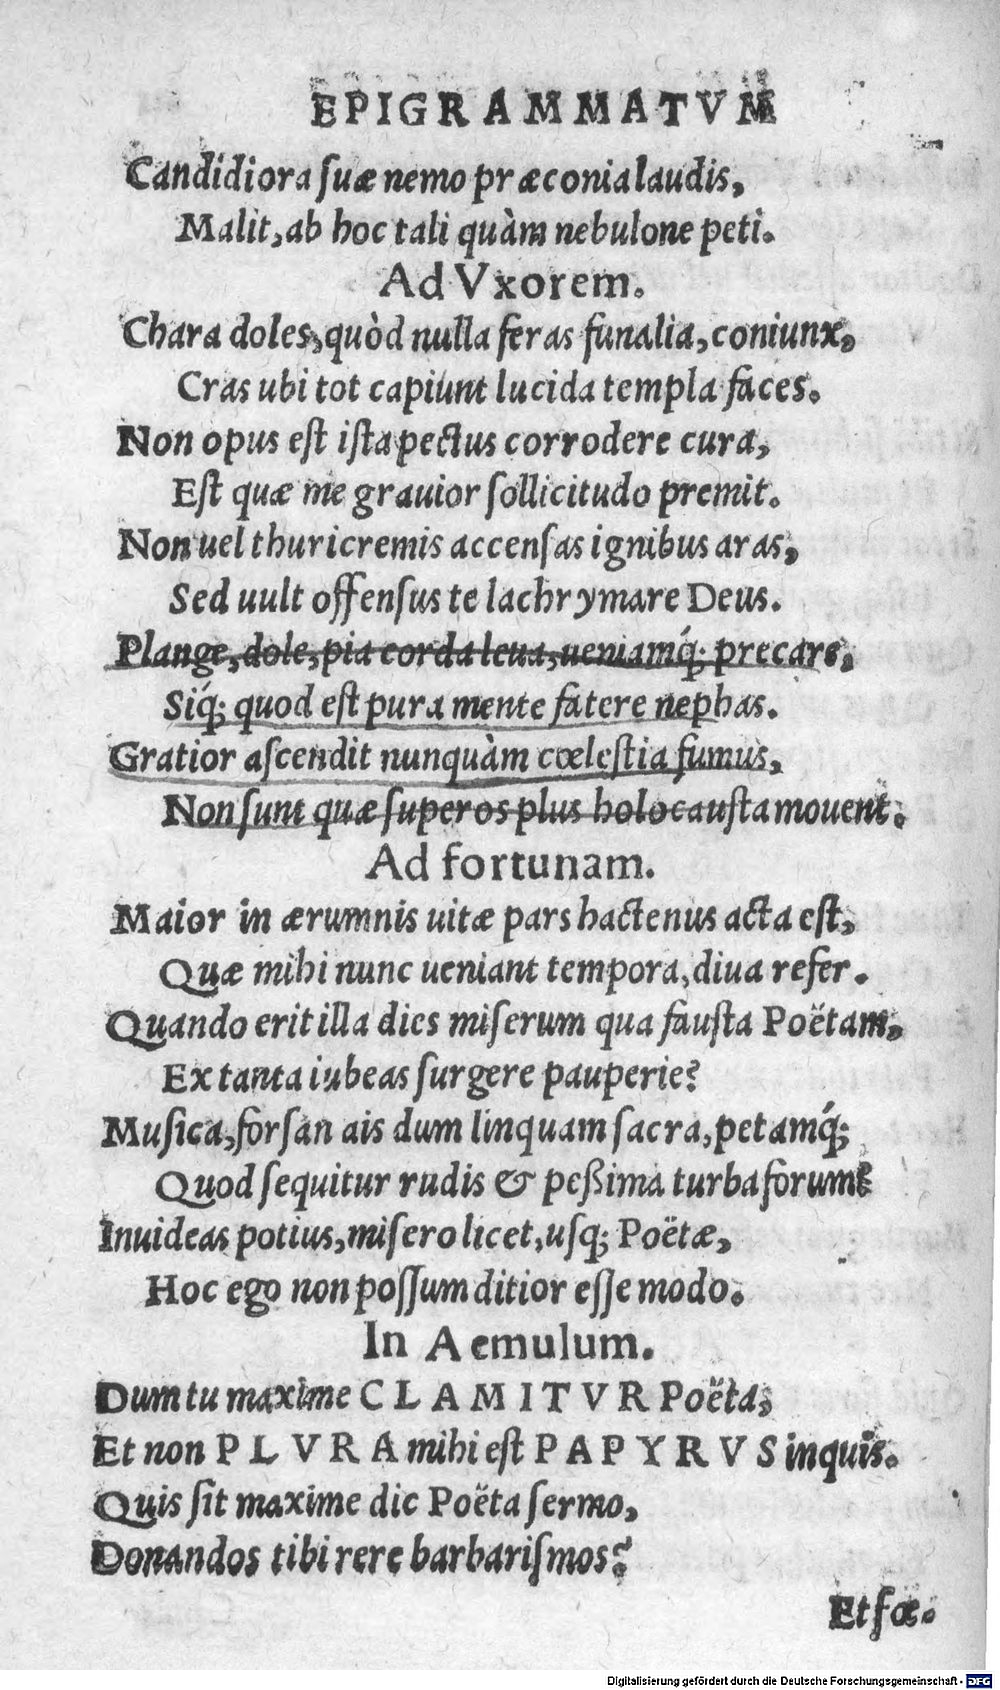 EPIGRAMMATVM
Candidiora ſuæ nemo præconia laudis,
Malit, ab hoc tali quàm nebulone peti.
Ad Vxorem.
Chara doles, quòd nulla feras funalia, coniunx,
Cras ubi tot capiunt lucida templa faces.
Non opus eſt iſta pectus corrodere cura,
Eſt quæ me grauior ſollicitudo premit.
Non uel thuricremis accenſas ignibus aras,
Sed uult offenſus te lachrymare Deus.
Plange, dole, pia corda leua, ueniamq́; precare,
Siq́; quod eſt pura mente fatere nephas.
Gratior aſcendit nunquàm cœleſtia fumus,
Non ſunt quæ ſuperos plus holocauſta mouent.
Ad fortunam.
Maior in ærumnis uitæ pars hactenus acta eſt,
Quæ mihi nunc ueniant tempora, diua refer.
Quando erit illa dies miſerum qua fauſta Poëtam,
Ex tanta iubeas ſurgere pauperie?
Muſica, forſan ais dum linquam ſacra, petamq́;
Quod ſequitur rudis & peßima turba forum?
Inuideas potius, miſero licet, uſq; Poëtæ,
Hoc ego non poſſum ditior eſſe modo.
In Aemulum.
Dum tu maxime CLAMITVR Poëta,
Et non PLVRA mihi eſt PAPYRVS inquis.
Quis ſit maxime dic Poëta ſermo,
Donandos tibi rere barbariſmos?
Et fœ.
Digitalisierung gefördert durch die Deutsche Forschungsgemeinschaft - DFG